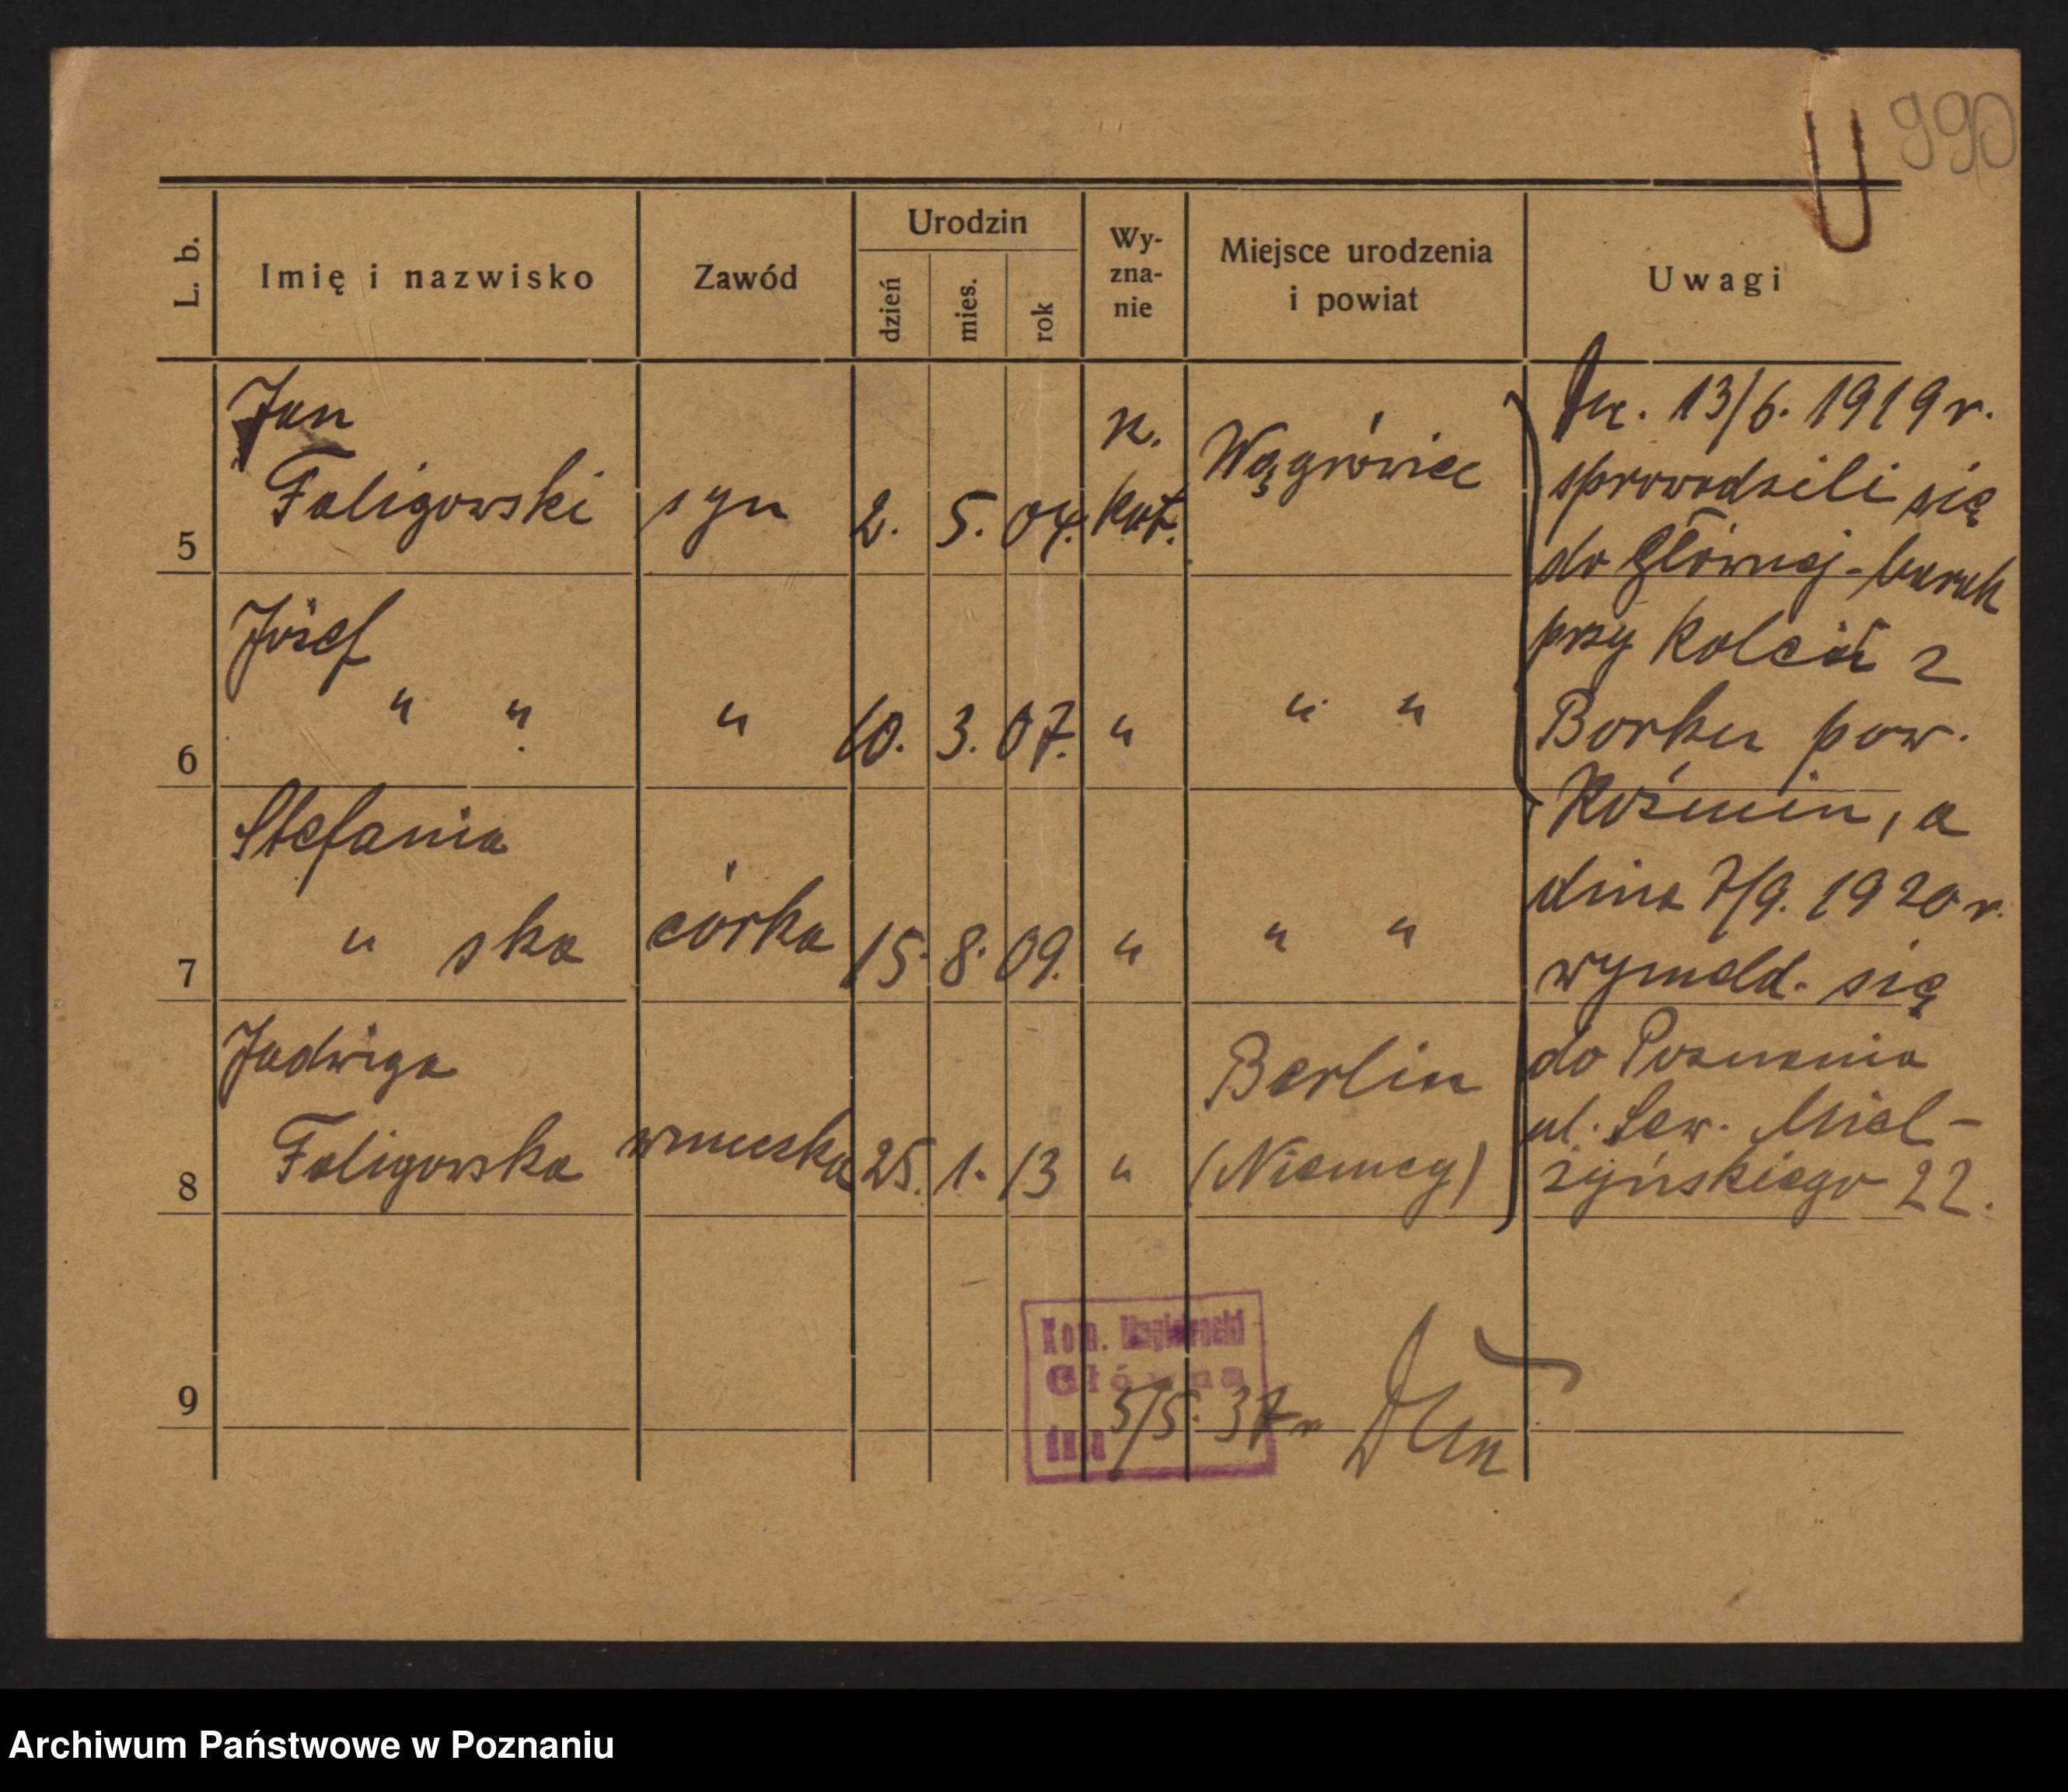 990
L. b.
Imię i nazwisko
Zawód
Urodzin
dzień
mies.
rok
Wy-
zna-
nie
Miejsce urodzenia
i powiat
Uwagi
5
Jan
Faligowski
syn
2. 5. 04.
kat.
Wągrówiec
6
Józef
" "
"
10. 3. 07.
"
" "
7
Stefania
" ska
córka
15. 8. 09.
"
" "
8
Jadwiga
Faligowska
wnuczka
25. 1. 13
"
Berlin
(Niemcy)
13/6. 1919 r.
sprowadzili się
do Głównej - barak
przy kolei z
Borku pow.
Koźmin, a
dnia 7/9. 1920 r.
wymeld. się
do Poznania
ul. Sew. Miel-
żyńskiego 22.
9
Kom.
Główna
dnia 5/5. 37 r
Archiwum Państwowe w Poznaniu